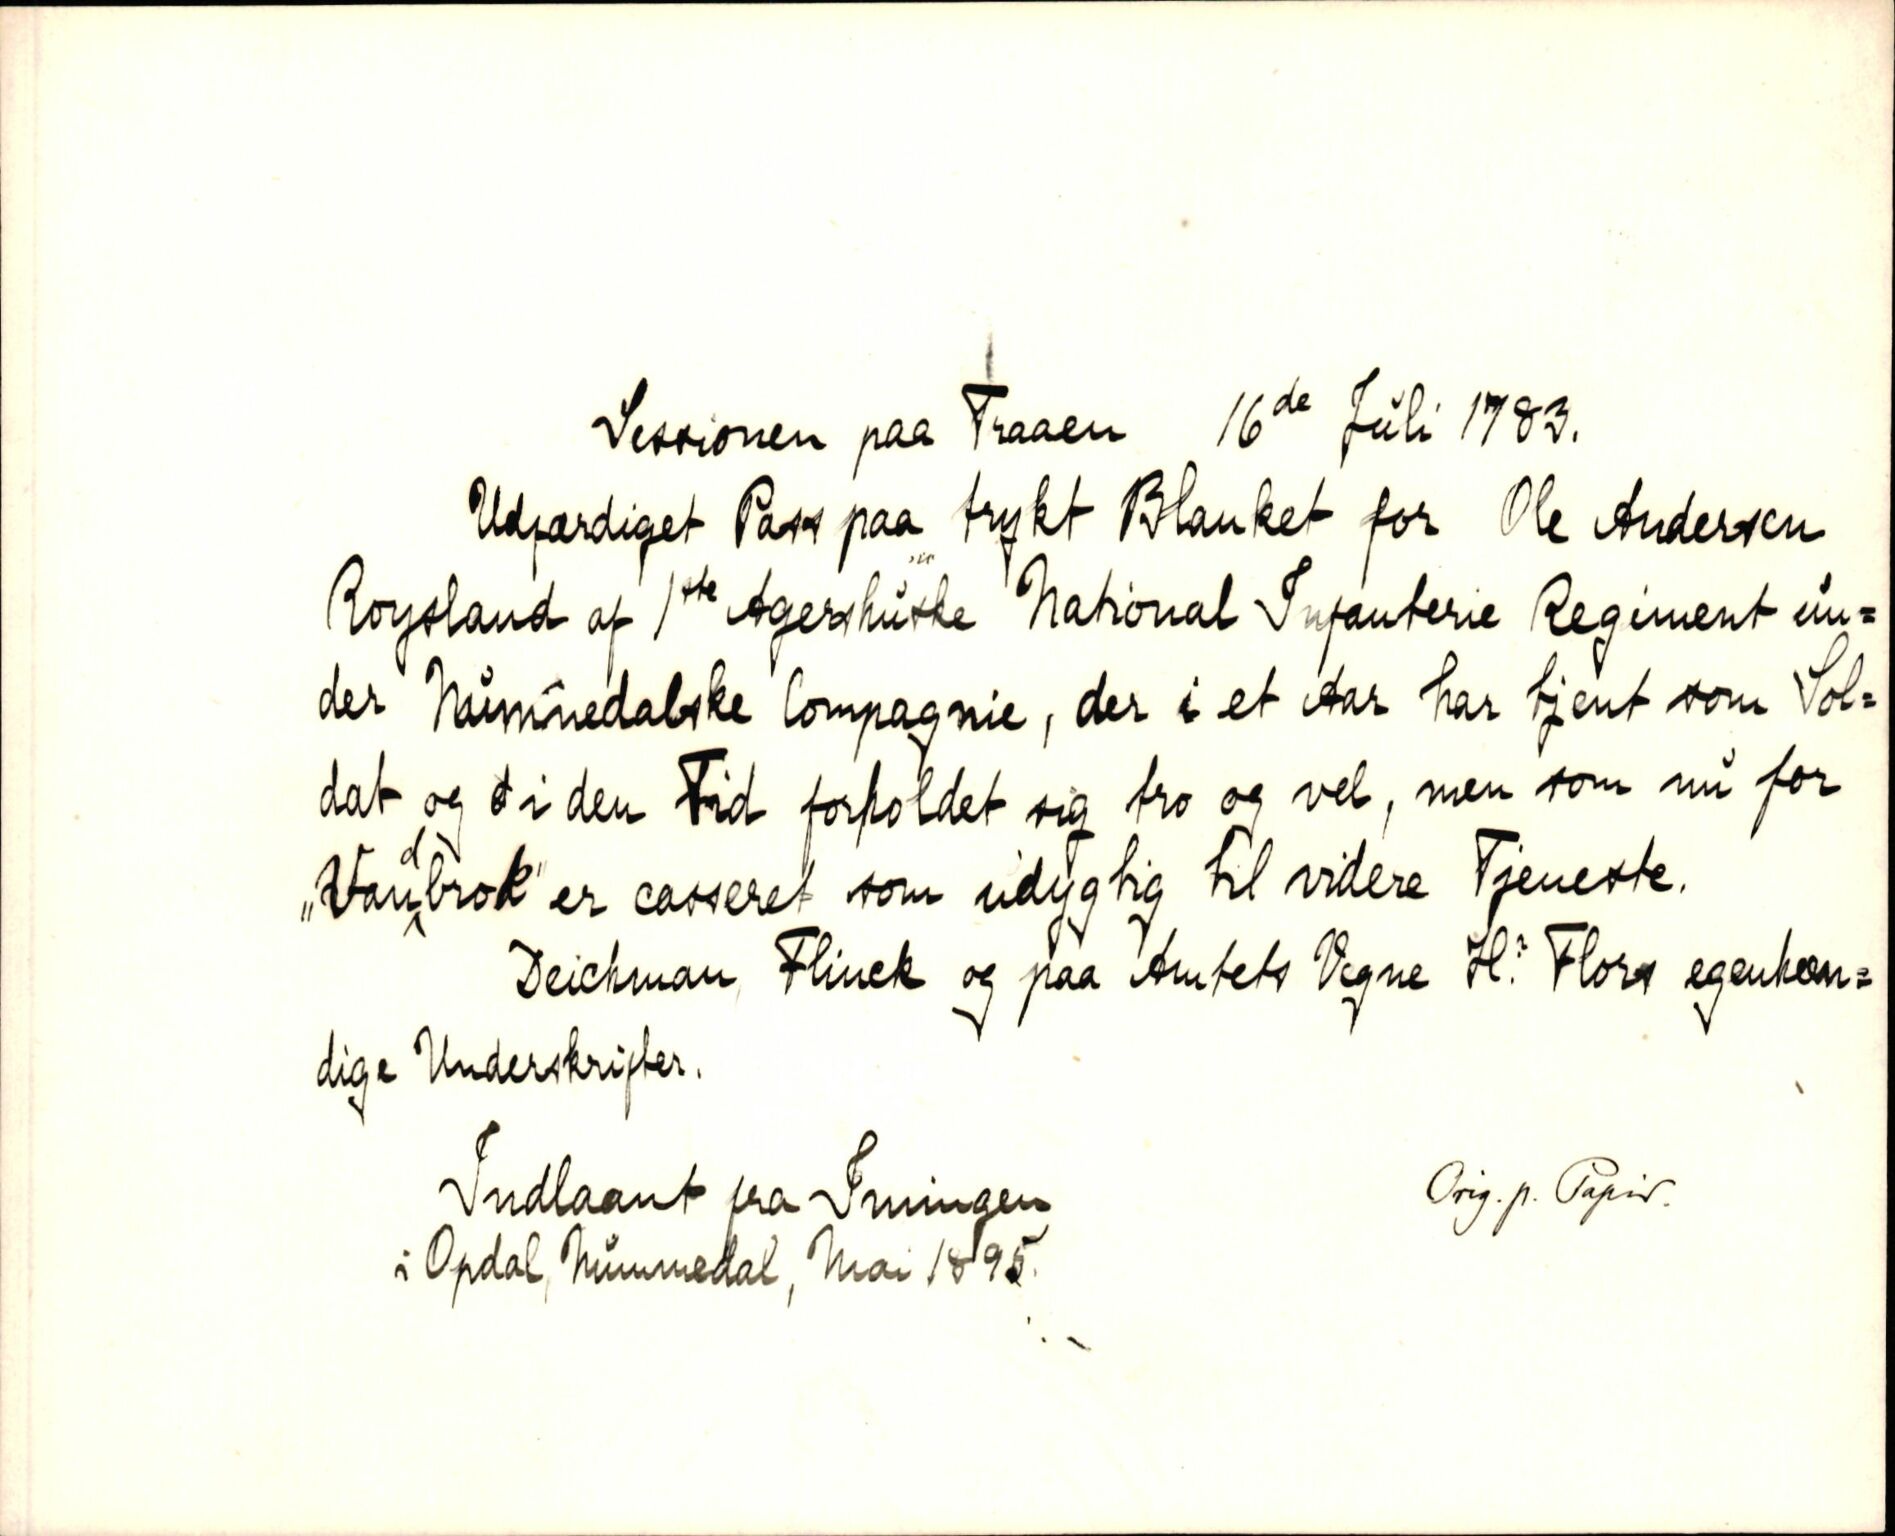 Sessionen paa Traaen 16de Juli 1783.
Udfærdiget Pass paa trykt Blanket for Ole Andersen
Roysland af 1ste Agershuske National Infanterie Regiment un=
der Nummedalske Compagnie, der i et Aar har tjent som Sol=
dat og i den Tid forholdet sig tro og vel, men som nu for
„Vandbrok" er casseret som udygtig til videre Tjeneste.
Deichman, Flinck og paa Amtets Vegne H: Flors egenhæn=
dige Underskrifter.
Indlaant fra Imingen
i Opdal, Nummedal, Mai 1895.
Orig. p. Papir.